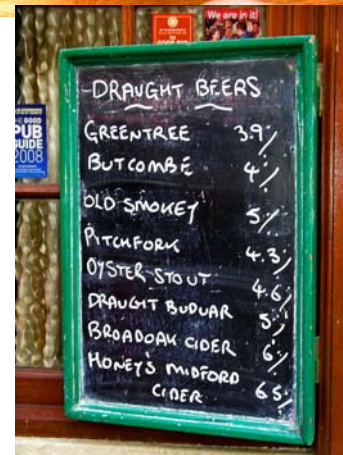 We are in it!
THE GOOD
PUB
GUIDE
2008
DRAUGHT BEERS
GREENTREE 3.9%
BUTCOMBE 4%
OLD SMOKEY 5%
PITCHFORK 4.3%
OYSTER STOUT 4.6%
DRAUGHT BUDVAR 5%
BROADOAK CIDER 6%
HONEY'S MIDFORD
CIDER 6.5%